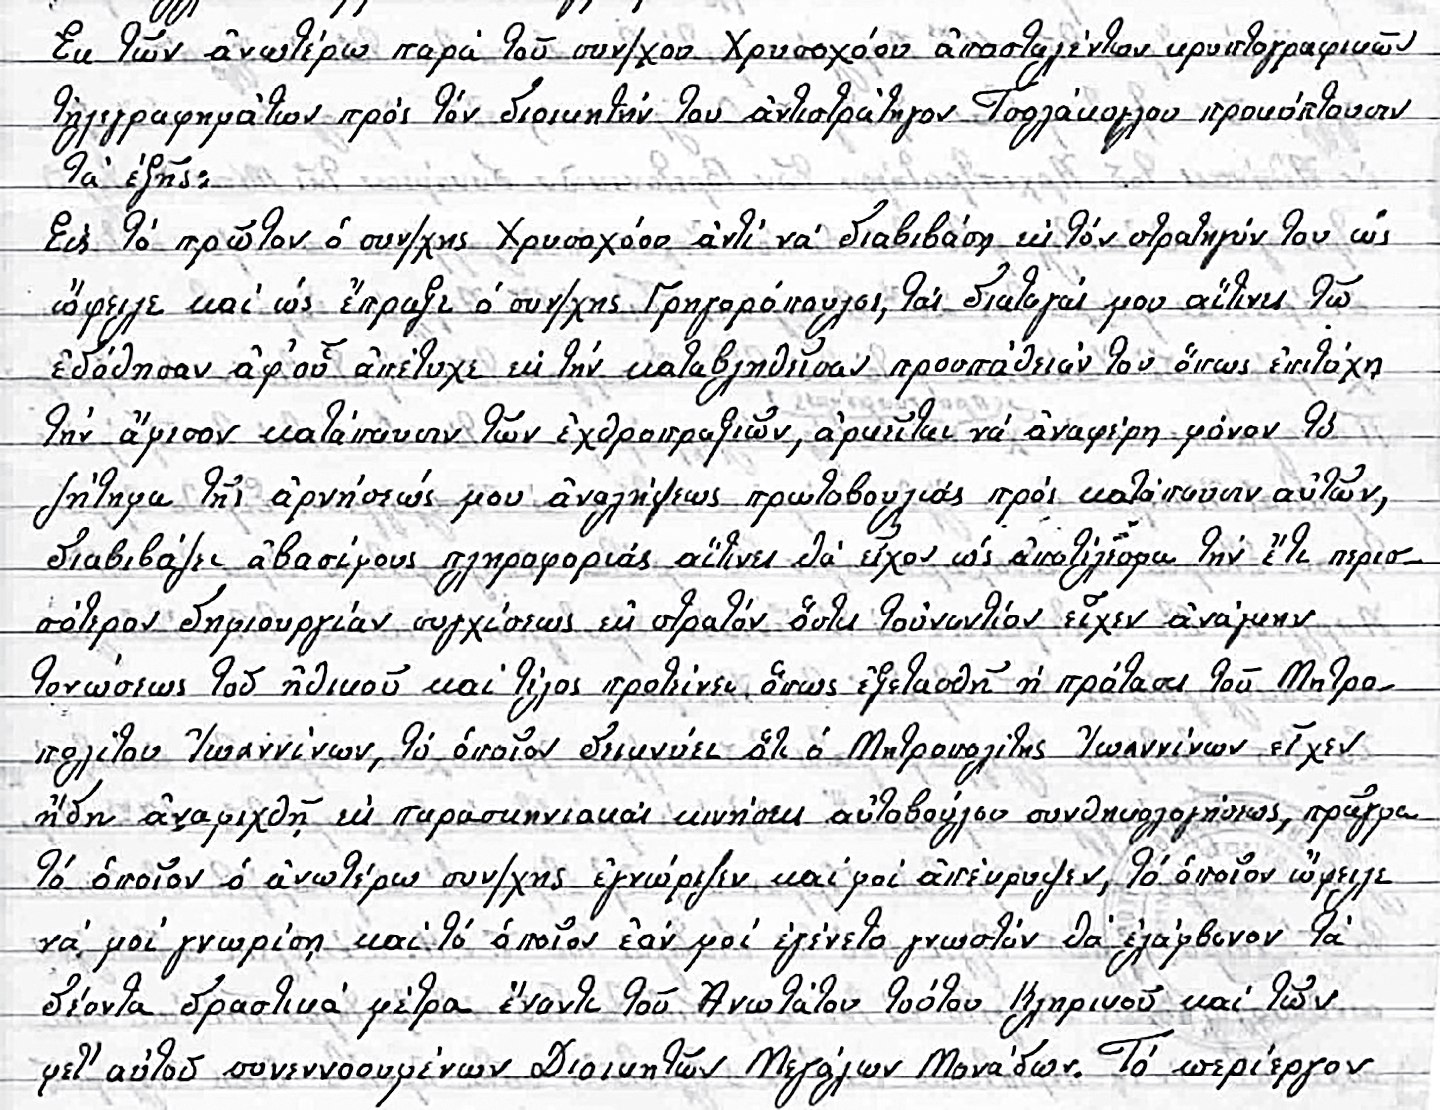 Ἐκ τῶν ἀνωτέρω παρὰ τοῦ συν/χου Χρυσοχόου ἀποσταλέντων κρυπτογραφικῶν
τηλεγραφημάτων πρὸς τὸν διοικητήν του ἀντιστράτηγον Τσολάκογλου προκύπτουσιν
τὰ ἑξῆς:
Εἰς τὸ πρῶτον ὁ συν/χης Χρυσοχόου ἀντὶ νὰ διαβιβάσῃ εἰς τὸν στρατηγόν του ὡς
ὤφειλε καὶ ὡς ἔπραξε ὁ συν/χης Γρηγορόπουλος, τὰς διαταγάς μου αἵτινες τῷ
ἐδόθησαν ἀφ' οὗ ἀπέτυχε εἰς τὴν καταβληθεῖσαν προσπάθειάν του ὅπως ἐπιτύχῃ
τὴν ἄμεσον κατάπαυσιν τῶν ἐχθροπραξιῶν, ἀρκεῖται νὰ ἀναφέρῃ μόνον τὸ
ζήτημα τῆς ἀρνήσεώς μου ἀναλήψεως πρωτοβουλίας πρὸς κατάπαυσιν αὐτῶν,
διαβιβάζει ἀβασίμους πληροφορίας αἵτινες θὰ εἶχον ὡς ἀποτέλεσμα τὴν ἔτι περισ-
σότερον δημιουργίαν συγχύσεως εἰς στρατὸν ὅστις τοὐναντίον εἶχεν ἀνάγκην
τονώσεως τοῦ ἠθικοῦ καὶ τέλος προτείνει ὅπως ἐξετασθῇ ἡ πρότασις τοῦ Μητρο-
πολίτου Ἰωαννίνων, τὸ ὁποῖον δεικνύει ὅτι ὁ Μητροπολίτης Ἰωαννίνων εἶχεν
ἤδη ἀναμιχθῆ εἰς παρασκηνιακὰς κινήσεις αὐτοβούλου συνθηκολογήσεως, πρᾶγμα
τὸ ὁποῖον ὁ ἀνωτέρω συν/χης ἐγνώριζεν καὶ μοὶ ἀπέκρυψεν, τὸ ὁποῖον ὤφειλε
νὰ μοὶ γνωρίσῃ καὶ τὸ ὁποῖον ἐὰν μοὶ ἐγένετο γνωστὸν θὰ ἐλάμβανον τὰ
δέοντα δραστικὰ μέτρα ἔναντι τοῦ Ἀνωτάτου τούτου Κληρικοῦ καὶ τῶν
μετ' αὐτοῦ συνεννοουμένων Διοικητῶν Μεγάλων Μονάδων. Τὸ περίεργον